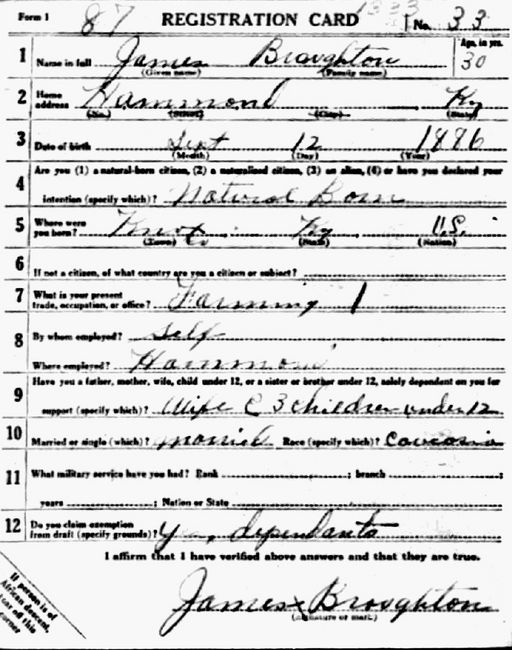 Form 1 87 REGISTRATION CARD 1333 No. 33
1 Name in full James Broughton Age, in yrs. 30
(Given name) (Family name)
2 Home address Hammond Ky
(No.) (Street) (City) (State)
3 Date of birth Sept 12 1886
(Month) (Day) (Year)
4 Are you (1) a natural-born citizen, (2) a naturalized citizen, (3) an alien, (4) or have you declared your
intention (specify which)? Natural Born
5 Where were you born? Knox Ky U.S.
(Town) (State) (Nation)
6 If not a citizen, of what country are you a citizen or subject?
7 What is your present trade, occupation, or office? Farming 1
8 By whom employed? Self
Where employed? Hammond
9 Have you a father, mother, wife, child under 12, or a sister or brother under 12, solely dependent on you for
support (specify which)? Wife & 3 children under 12
10 Married or single (which)? Married Race (specify which)? Caucasian
11 What military service have you had? Rank ; branch ;
years ; Nation or State
12 Do you claim exemption from draft (specify grounds)? Yes, dependants
I affirm that I have verified above answers and that they are true.
James x Broughton
(Signature or mark)
If person is of
African descent,
tear off this
corner